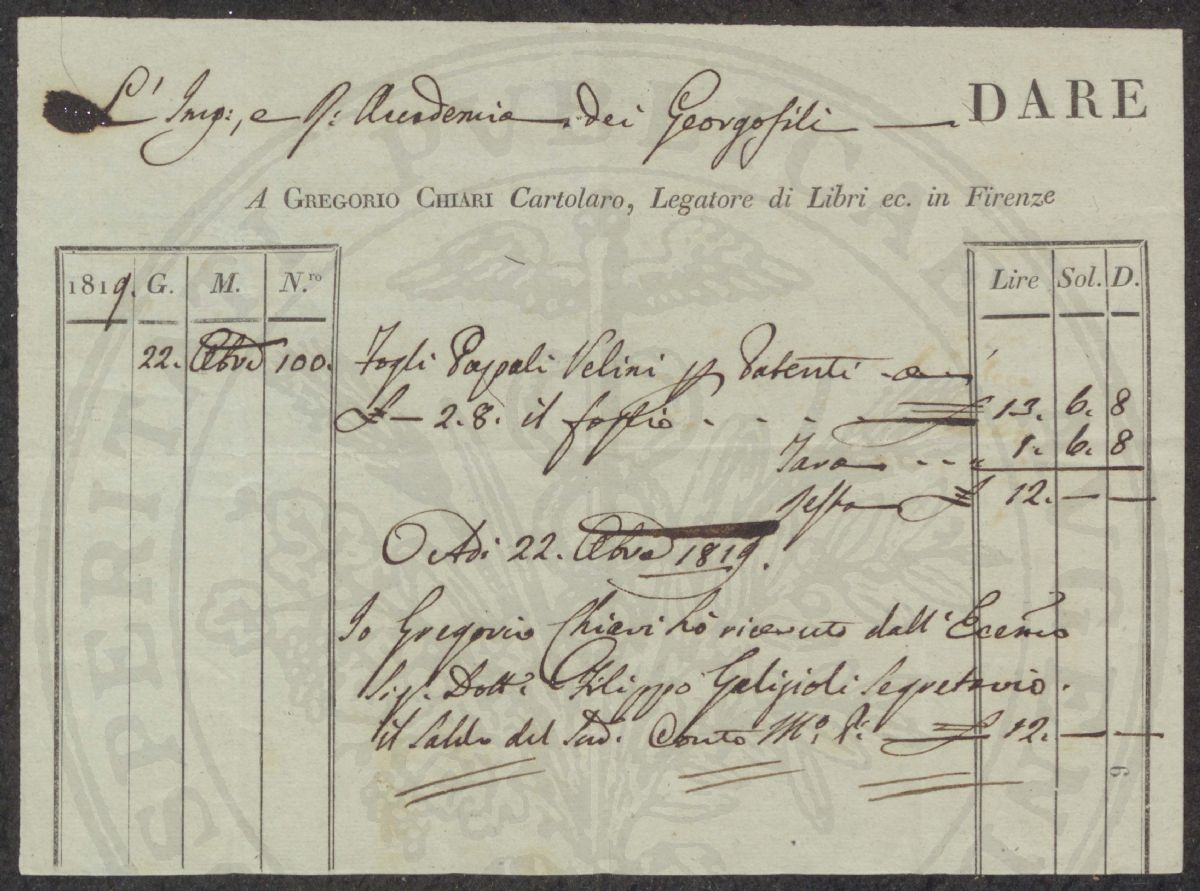 L' Imp: e R: Accademia dei Georgofili — DARE
A GREGORIO CHIARI Cartolaro, Legatore di Libri ec. in Firenze
1819. G. M. N.ro Lire Sol. D.
22. 100. Fogli Papali Velini p Patenti
£ — 2. 8. il foglio . . . £ 13. 6. 8
Tara . . . 1. 6. 8
resta £ 12. — —
Adi 22. 1819.
Io Gregorio Chiari hò ricevuto dall' Ecc.mo
Sig.r Dott.e Filippo Galizioli Segretario
il Saldo del Sud.o Conto M.o P.a £ 12. — —
PROSPERITATI PUBLICAE AUGENDAE